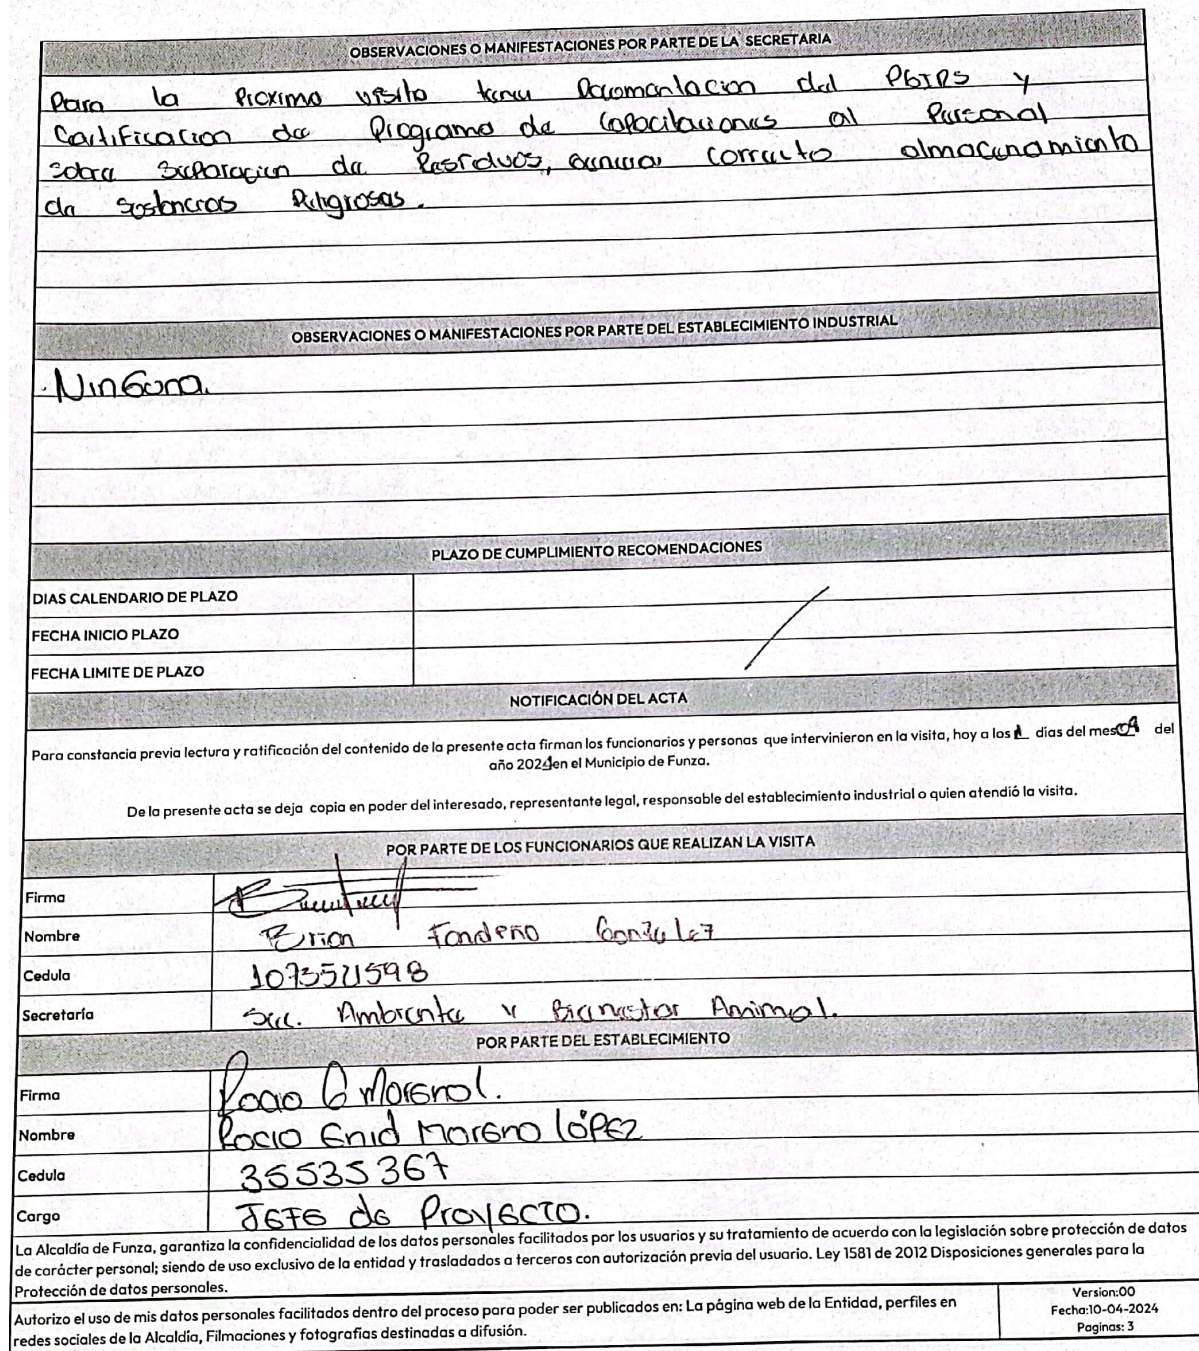 OBSERVACIONES O MANIFESTACIONES POR PARTE DE LA SECRETARIA
Para la Proximo visita tener Documentacion del PGIRS y
Certificacion de Programa de Capacitaciones al Personal
sobre Separacion de Residuos, correcto almacenamiento
de Sostancias Peligrosas.
OBSERVACIONES O MANIFESTACIONES POR PARTE DEL ESTABLECIMIENTO INDUSTRIAL
. Ninguna.
PLAZO DE CUMPLIMIENTO RECOMENDACIONES
DIAS CALENDARIO DE PLAZO
FECHA INICIO PLAZO
FECHA LIMITE DE PLAZO
NOTIFICACIÓN DEL ACTA
Para constancia previa lectura y ratificación del contenido de la presente acta firman los funcionarios y personas que intervinieron en la visita, hoy a los días del mes 09 del
año 2024 en el Municipio de Funza.
De la presente acta se deja copia en poder del interesado, representante legal, responsable del establecimiento industrial o quien atendió la visita.
POR PARTE DE LOS FUNCIONARIOS QUE REALIZAN LA VISITA
Firma
Nombre Brian Fandeño Gonzalez
Cedula
Secretaría Sec. Ambiente y Bienestar Animal.
POR PARTE DEL ESTABLECIMIENTO
Firma Rocio E Moreno L.
Nombre Rocio Enid Moreno LóPEz
Cedula 35535367
Cargo JEFE de Proyecto.
La Alcaldía de Funza, garantiza la confidencialidad de los datos personales facilitados por los usuarios y su tratamiento de acuerdo con la legislación sobre protección de datos
de carácter personal; siendo de uso exclusivo de la entidad y trasladados a terceros con autorización previa del usuario. Ley 1581 de 2012 Disposiciones generales para la
Protección de datos personales.
Autorizo el uso de mis datos personales facilitados dentro del proceso para poder ser publicados en: La página web de la Entidad, perfiles en
redes sociales de la Alcaldía, Filmaciones y fotografías destinadas a difusión.
Version:00
Fecha:10-04-2024
Paginas: 3